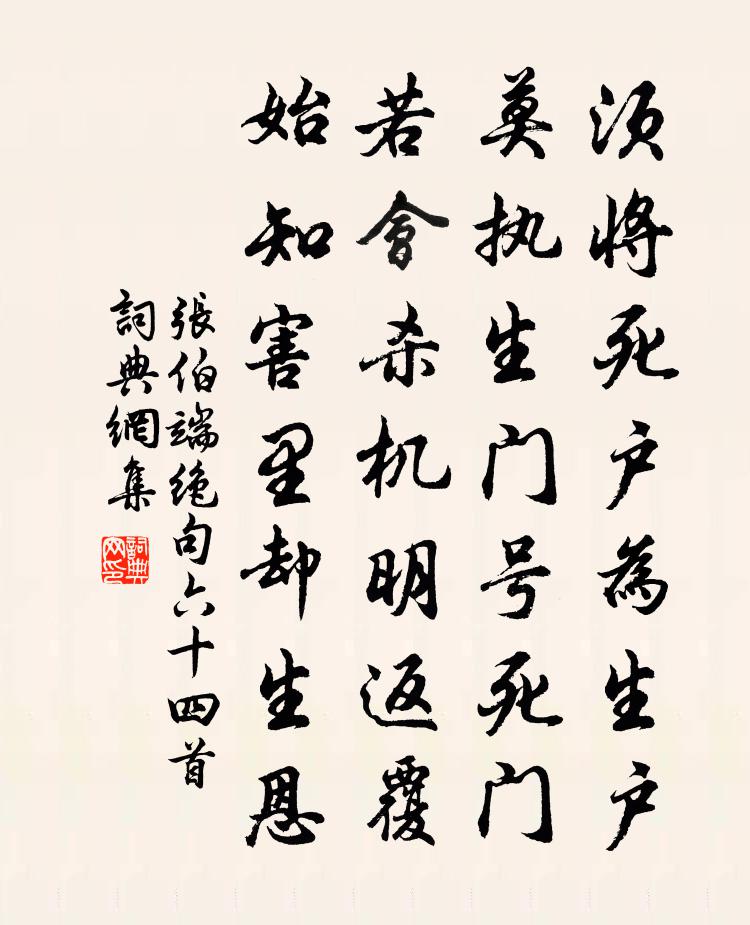 须将死户为生户
莫执生门号死门
若会杀机明返覆
始知害里却生恩
張伯端绝句六十四首
詞典網集
詞典网印